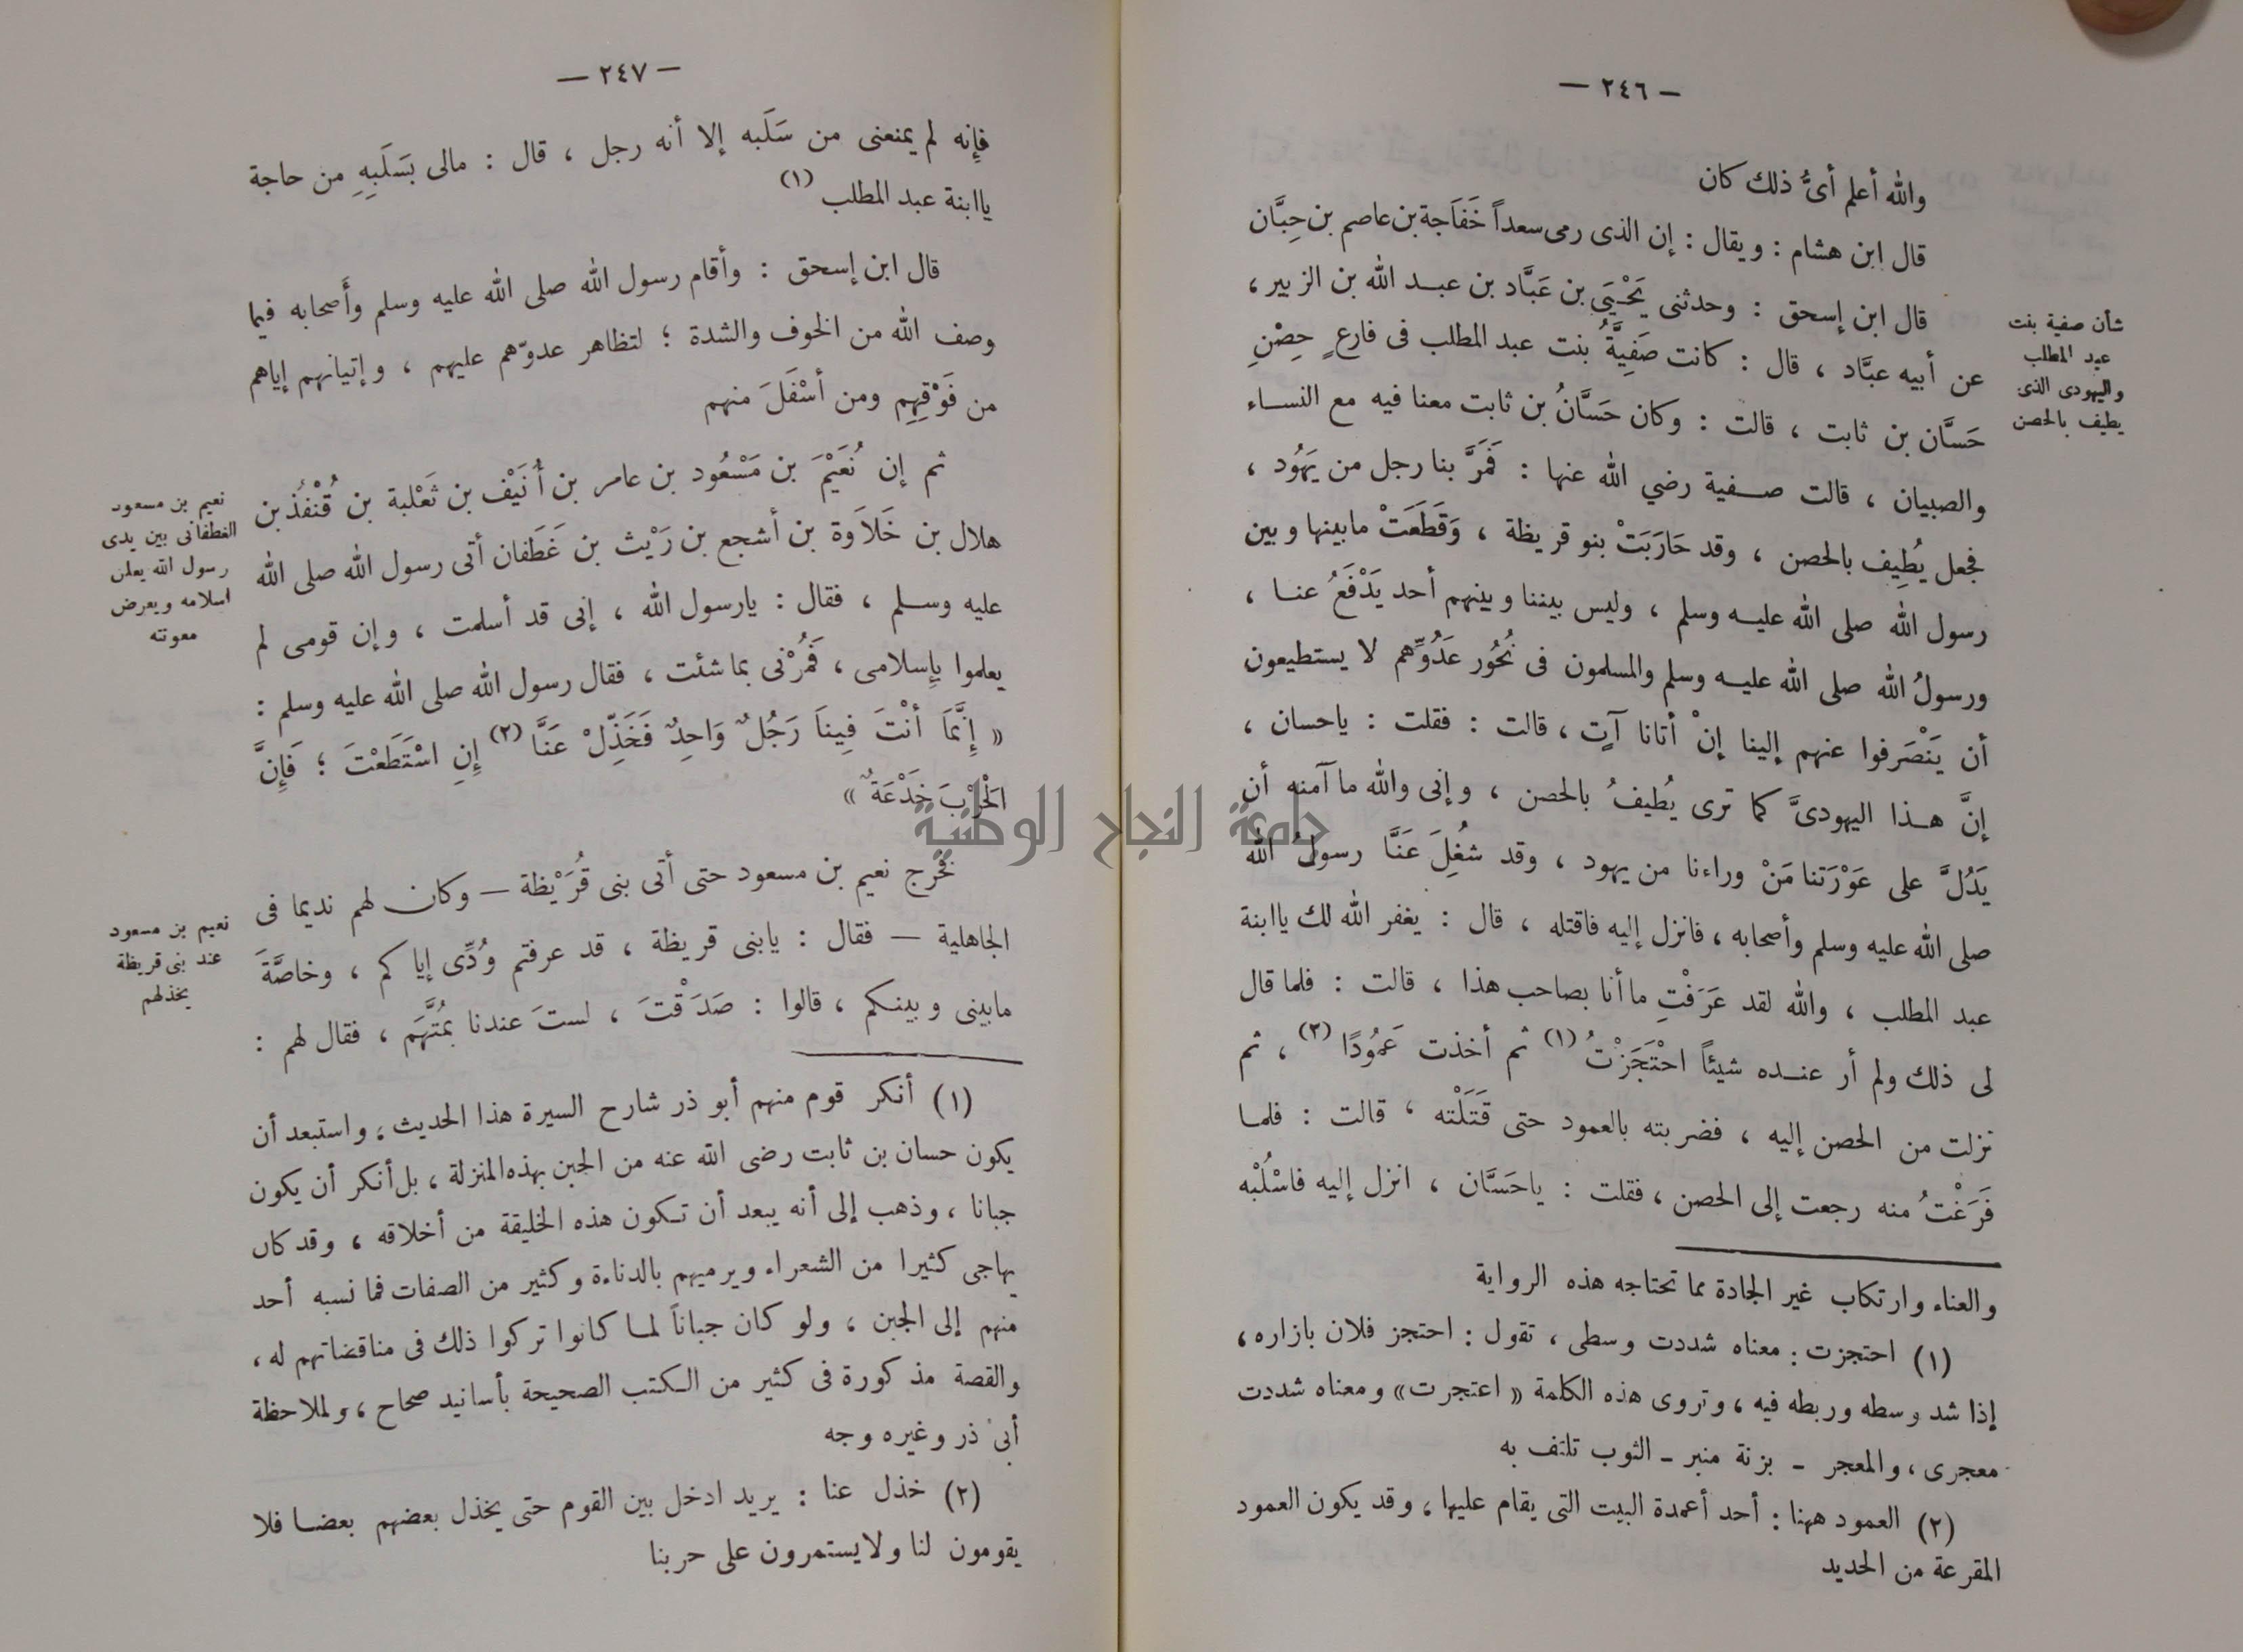 — ٢٤٦ —
والله أعلم أىُّ ذلك كان
قال ابن هشام : ويقال : إن الذى رمى سعداً خَفاَجة بن عاصم بن حِبَّان
قال ابن إسحق : وحدثنى يَحْيَى بن عَبَّاد بن عبد الله بن الزبير ،
عن أبيه عبَّاد ، قال : كانت صَفِيَّةُ بنت عبد المطلب فى فارعٍ حِصْنِ
حَسَّان بن ثابت ، قالت : وكان حَسَّانُ بن ثابت معنا فيه مع النساء
والصبيان ، قالت صفية رضي الله عنها : فَمَرَّ بنا رجل من يَهُود ،
فجعل يُطِيف بالحصن ، وقد حَارَبَتْ بنو قريظة ، وَقَطَعَتْ مابينها وبين
رسول الله صلى الله عليه وسلم ، وليس بيننا وبينهم أحد يَدْفَعُ عنا ،
ورسولُ الله صلى الله عليه وسلم والمسلمون فى نُحُور عَدُوِّهم لا يستطيعون
أن يَنْصَرفوا عنهم إلينا إنْ أتانا آتٍ ، قالت : فقلت : ياحسان ،
إنَّ هذا اليهودىَّ كما ترى يُطيفُ بالحصن ، وإنى والله ما آمنه أن
يَدُلَّ على عَوْرَتنا مَنْ وراءنا من يهود ، وقد شُغِلَ عَنَّا رسولُ الله
صلى الله عليه وسلم وأصحابه ، فانزل إليه فاقتله ، قال : يغفر الله لك ياابنة
عبد المطلب ، والله لقد عَرَفْتِ ما أنا بصاحب هذا ، قالت : فلما قال
لى ذلك ولم أر عنده شيئاً احْتَجَزْتُ (١) ثم أخذت عَمُودًا (٢) ، ثم
نزلت من الحصن إليه ، فضربته بالعمود حتى قَتَلْته ، قالت : فلما
فَرَغْتُ منه رجعت إلى الحصن ، فقلت : ياحَسَّان ، انزل إليه فاسْلُبْه
والعناء وارتكاب غير الجادة مما تحتاجه هذه الرواية
(١) احتجزت : معناه شددت وسطى ، تقول : احتجز فلان بازاره ،
إذا شد وسطه وربطه فيه ، وتروى هذه الكلمة « اعتجرت » ومعناه شددت
معجرى ، والمعجر - بزنة منبر - الثوب تلتف به
(٢) العمود ههنا : أحد أعمدة البيت التى يقام عليها ، وقد يكون العمود
المقرعة من الحديد
شأن صفية بنت
عبد المطلب
واليهودى الذى
يطيف بالحصن
— ٢٤٧ —
فإنه لم يمنعنى من سَلَبه إلا أنه رجل ، قال : مالى بَسَلَبِهِ من حاجة
ياابنة عبد المطلب (١)
قال ابن إسحق : وأقام رسول الله صلى الله عليه وسلم وأصحابه فيما
وصف الله من الخوف والشدة ؛ لتظاهر عدوّهم عليهم ، وإتيانهم إياهم
من فَوْقِهِم ومن أسْفَلَ منهم
ثم إن نُعَيْمَ بن مَسْعُود بن عامر بن أُنَيْف بن ثَعْلبة بن قُنْفُذ بن
هلال بن خَلاَوة بن أشجع بن رَيْث بن غَطَفان أتى رسول الله صلى الله
عليه وسلم ، فقال : يارسول الله ، إنى قد أسلمت ، وإن قومى لم
يعلموا بإسلامى ، فَمُرْنى بما شئت ، فقال رسول الله صلى الله عليه وسلم :
« إِنَّمَا أنْتَ فِيناَ رَجُلٌ وَاحِدٌ فَخَذِّلْ عَنَّا (٢) إِنِ اسْتَطَعْتَ ؛ فَإِنَّ
الْحَرْبَ خَدْعَةٌ »
فخرج نعيم بن مسعود حتى أتى بنى قُرَيْظة — وكان لهم نديما فى
الجاهلية — فقال : يابنى قريظة ، قد عرفتم وُدِّى إياكم ، وخاصَّةَ
مابينى وبينكم ، قالوا : صَدَقْتَ ، لستَ عندنا بمُتَّهَم ، فقال لهم :
(١) أنكر قوم منهم أبو ذر شارح السيرة هذا الحديث ، واستبعد أن
يكون حسان بن ثابت رضى الله عنه من الجبن بهذه المنزلة ، بل أنكر أن يكون
جبانا ، وذهب إلى أنه يبعد أن تكون هذه الخليقة من أخلاقه ، وقد كان
يهاجى كثيرا من الشعراء ويرميهم بالدناءة وكثير من الصفات فما نسبه أحد
منهم إلى الجبن ، ولو كان جباناً لما كانوا تركوا ذلك فى مناقضاتهم له ،
والقصة مذكورة فى كثير من الكتب الصحيحة بأسانيد صحاح ، ولملاحظة
أبى ذر وغيره وجه
(٢) خذل عنا : يريد ادخل بين القوم حتى يخذل بعضهم بعضا فلا
يقومون لنا ولا يستمرون على حربنا
نعيم بن مسعود
الغطفانى بين يدى
رسول الله يعلن
اسلامه ويعرض
معونته
نعيم بن مسعود
عند بنى قريظة
يخذلهم
جامعة النجاح الوطنية